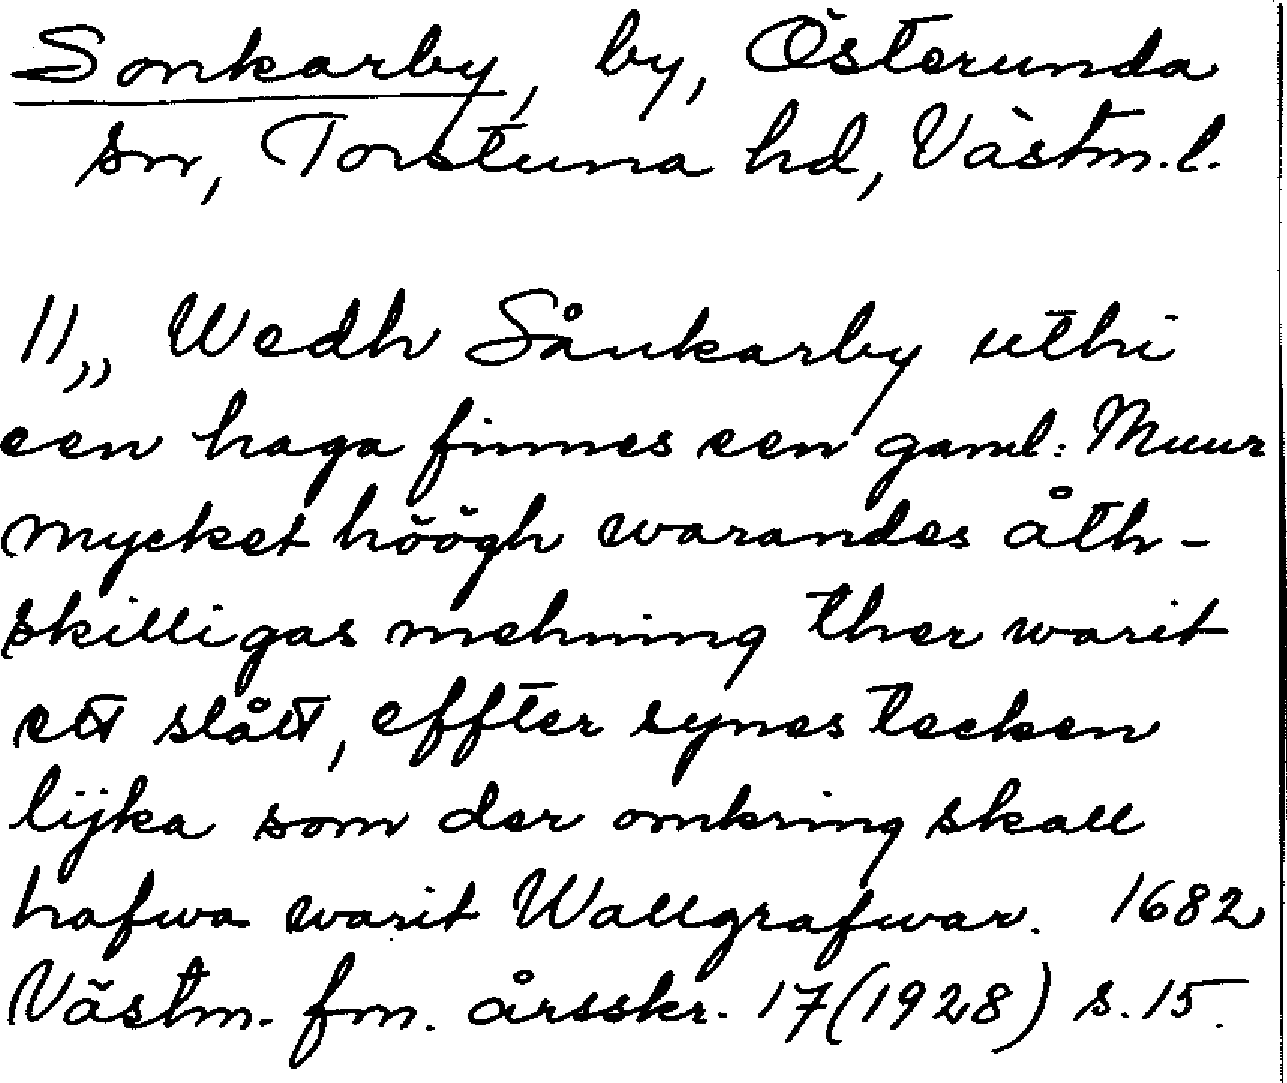 Sonkarby, by, Österunda
sn, Torstuna hd, Västm.l.
1),, Wedh Sånkarby uthi
een haga finnes een gaml: Muur
mycket höögh warandes åth-
skilligas mehning ther warit
ett slått, effter synes tecken
lijka som der omkring skall
hafwa warit Wallgrafwar. 1682
Västm. fm. årsskr. 17(1928) s. 15.